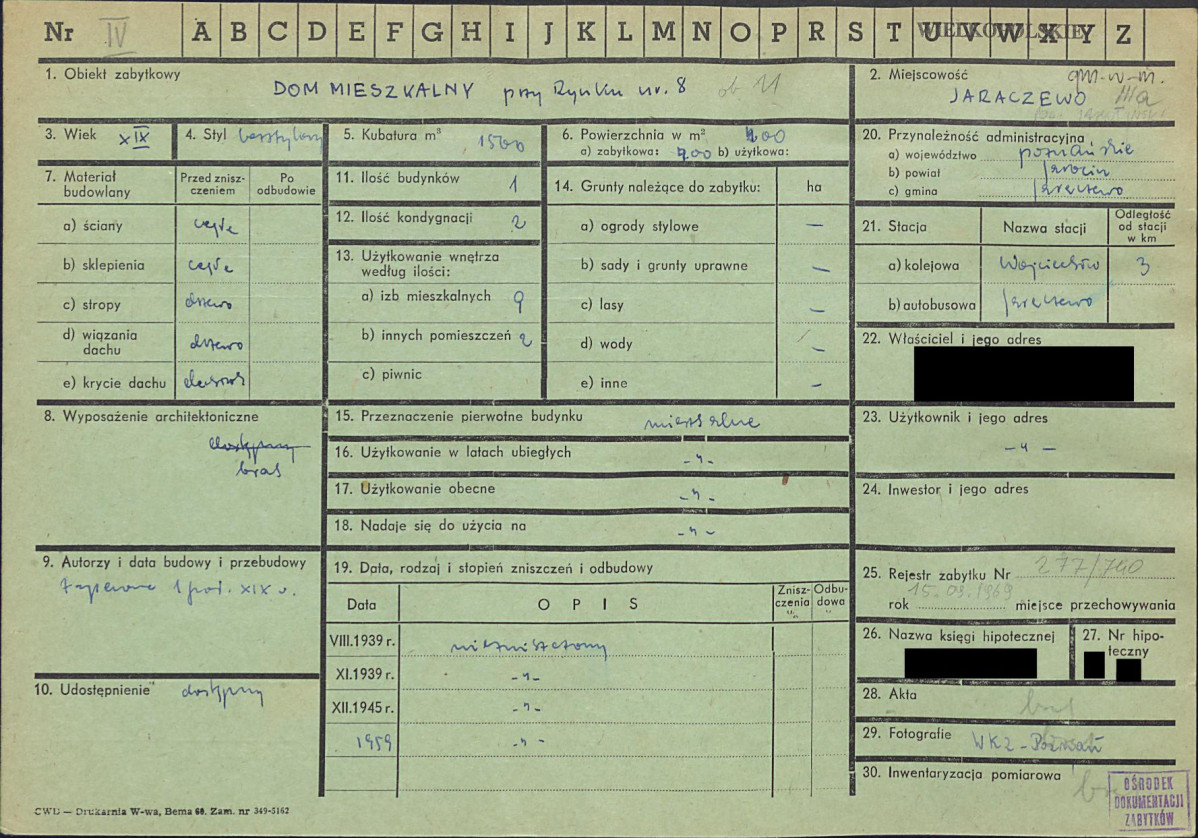 Nr IV A B C D E F G H I J K L M N O P R S T U V W X Y Z
WIELKOPOLSKIE
1. Obiekt zabytkowy
DOM MIESZKALNY przy Rynku nr. 8 ob 11
2. Miejscowość gm-w-m.
JARACZEWO IIIa
3. Wiek XIX
4. Styl bezstylowy
5. Kubatura m³ 1500
6. Powierzchnia w m².
a) zabytkowa: 200 b) użytkowa:
20. Przynależność administracyjna
a) województwo poznańskie
b) powiat Jarocin
c) gmina Jaraczewo
7. Materiał budowlany
Przed zniszczeniem
Po odbudowie
a) ściany cegła
b) sklepienia cegła
c) stropy drzewo
d) wiązania dachu drzewo
e) krycie dachu dachówka
11. Ilość budynków 1
12. Ilość kondygnacji 2
13. Użytkowanie wnętrza według ilości:
a) izb mieszkalnych 9
b) innych pomieszczeń 2
c) piwnic
14. Grunty należące do zabytku: ha
a) ogrody stylowe —
b) sady i grunty uprawne —
c) lasy —
d) wody —
e) inne —
21. Stacja
Nazwa stacji
Odległość od stacji w km
a) kolejowa Wojciechów 3
b) autobusowa Jaraczewo
22. Właściciel i jego adres
8. Wyposażenie architektoniczne
dostępny
brak
15. Przeznaczenie pierwotne budynku mieszkalne
16. Użytkowanie w latach ubiegłych -"-
17. Użytkowanie obecne -"-
18. Nadaje się do użycia na -"-
23. Użytkownik i jego adres
-"-
24. Inwestor i jego adres
9. Autorzy i data budowy i przebudowy
zapewne 1 poł. XIX w.
10. Udostępnienie dostępny
19. Data, rodzaj i stopień zniszczeń i odbudowy
Data
OPIS
Zniszczenia %
Odbudowa %
VIII.1939 r. niezniszczony
XI.1939 r. -"-
XII.1945 r. -"-
1959 -"-
25. Rejestr zabytku Nr 277/740
15.03.1969
rok miejsce przechowywania
26. Nazwa księgi hipotecznej
27. Nr hipoteczny
28. Akta brak
29. Fotografie WKZ - Poznań
30. Inwentaryzacja pomiarowa brak
OŚRODEK
DOKUMENTACJI
ZABYTKÓW
CWD — Drukarnia W-wa, Bema 60. Zam. nr 349-5162